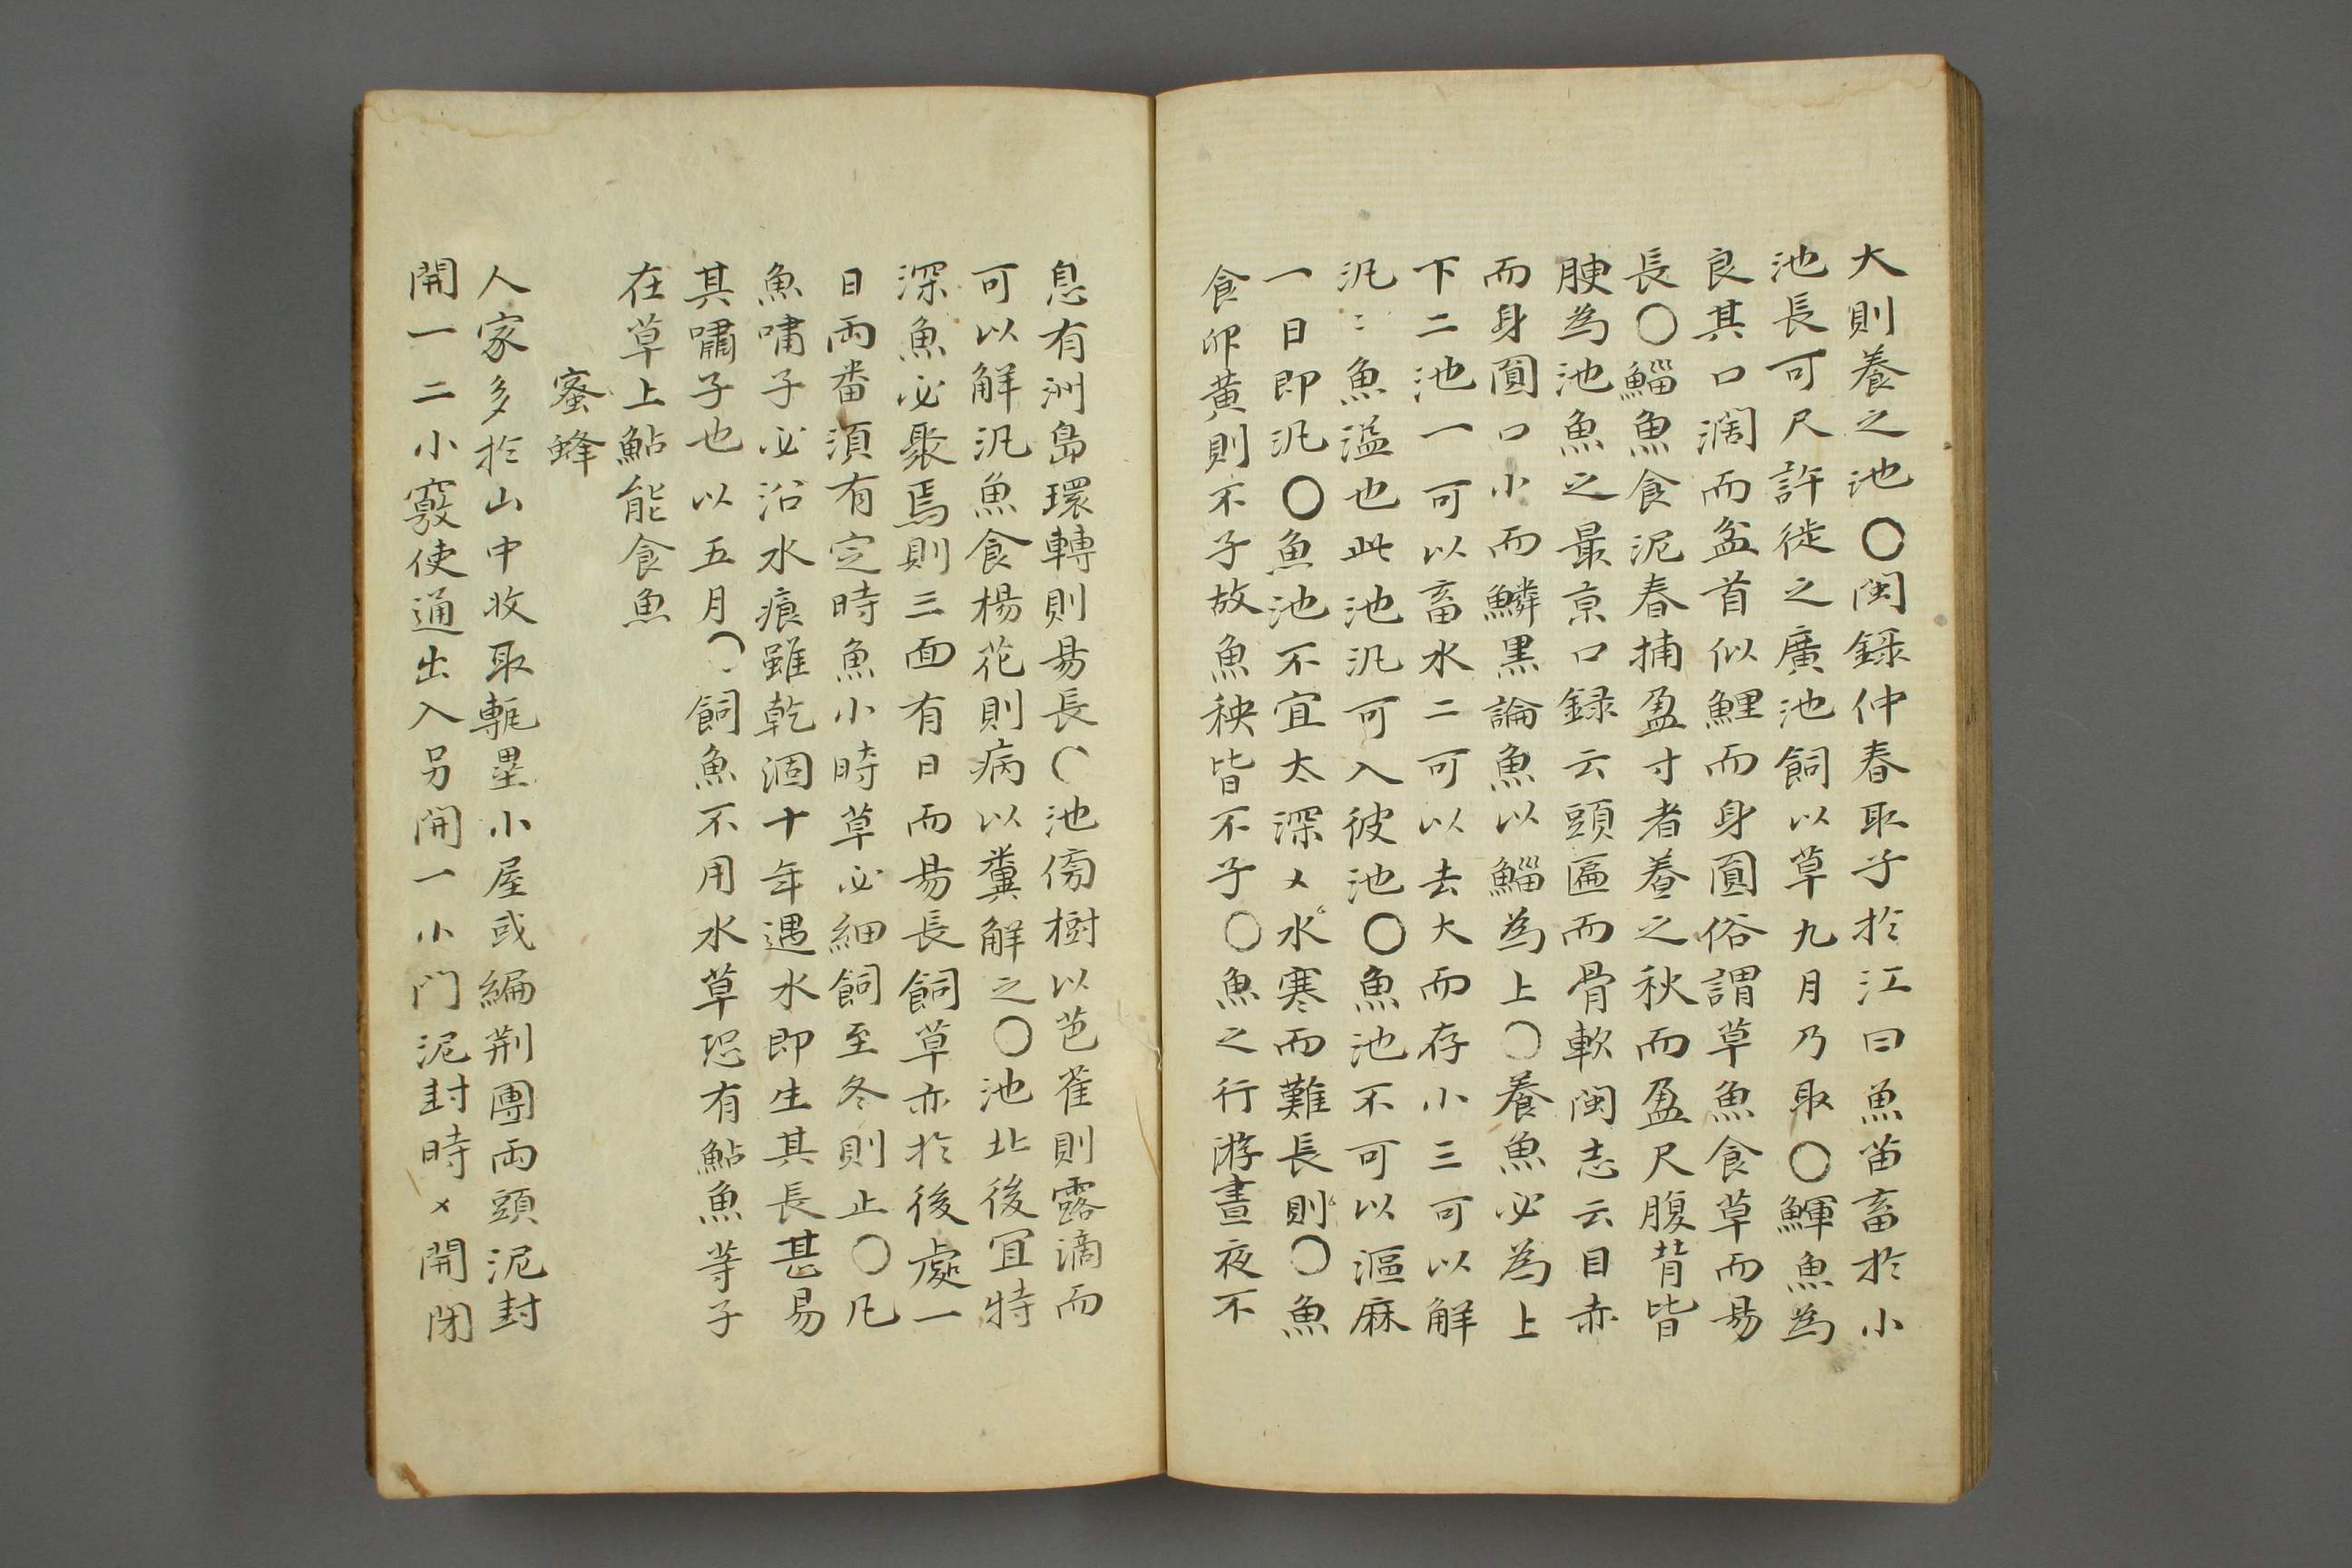 大則養之池〇閩録仲春取子於江曰魚苗畜於小
池長可尺許徙之廣池飼以草九月乃取〇鯶魚為
良其口濶而盆首似鯉而身圓俗謂草魚食草而易
長〇鯔魚食泥春捕盈寸者養之秋而盈尺腹背皆
腴為池魚之最京口録云頭匾而骨軟閩志云目赤
而身圓口小而鱗黒論魚以鯔為上〇養魚必為上
下二池一可以畜水二可以去大而存小三可以解
汎〻魚溢也此池汎可入彼池〇魚池不可以漚麻
一日即汎〇魚池不宜太深〻水寒而難長則〇魚
食卵黄則不子故魚秧皆不子〇魚之行游晝夜不
息有洲島環轉則易長〇池傍樹以芭蕉則露滴而
可以解汎魚食楊花則病以糞解之〇池北後宜特
深魚必聚焉則三面有日而易長飼草亦於後處一
日兩番湏有定時魚小時草必細飼至冬則止〇凡
魚嘯子必沿水痕雖乾涸十年遇水即生其長甚易
其嘯子也以五月〇飼魚不用水草恐有鮎魚等子
在草上鮎能食魚
蜜蜂
人家多於山中收取甎壘小屋或編荆團兩頭泥封
開一二小竅使通出入另開一小门泥封時〻開閉